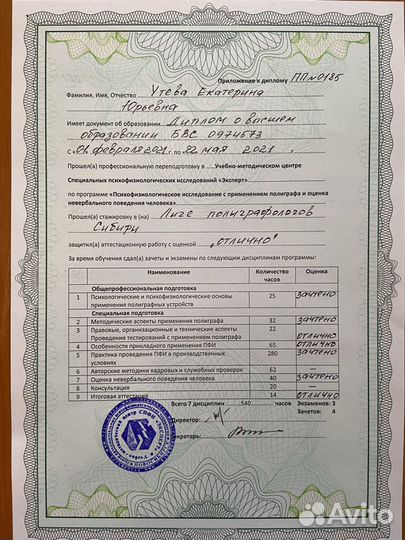 Приложение к диплому ПП №0185
Фамилия, Имя, Отчество Утева Екатерина
Юрьевна
Имеет документ об образовании Диплом о высшем
образовании БВС 0974573
с 01 февраля 2021 г. по 02 мая 2021 г.
Прошел(а) профессиональную переподготовку в Учебно-методическом центре
Специальных психофизиологических исследований «Эксперт»
по программе «Психофизиологическое исследование с применением полиграфа и оценка
невербального поведения человека»
Прошел(а) стажировку в (на) Лиге полиграфологов
Сибири
защитил(а) аттестационную работу с оценкой „отлично"
За время обучения сдал(а) зачеты и экзамены по следующим дисциплинам программы:
Наименование Количество часов Оценка
Общепрофессиональная подготовка
1 Психологические и психофизиологические основы применения полиграфных устройств 25 зачтено
Специальная подготовка
2 Методические аспекты применения полиграфа 32 зачтено
3 Правовые, организационные и технические аспекты Проведения тестирований с применением полиграфа 22 отлично
4 Особенности прикладного применения ПФИ 65 отлично
5 Практика проведения ПФИ в производственных условиях 280 зачтено
6 Авторские методики кадровых и служебных проверок 62 —
7 Оценка невербального поведения человека 40 зачтено
8 Консультация 20 —
9 Итоговая аттестация 14 отлично
Всего 7 дисциплин 540 часов Экзаменов: 3
Зачетов: 4
Директор:
Секретарь:
Avito